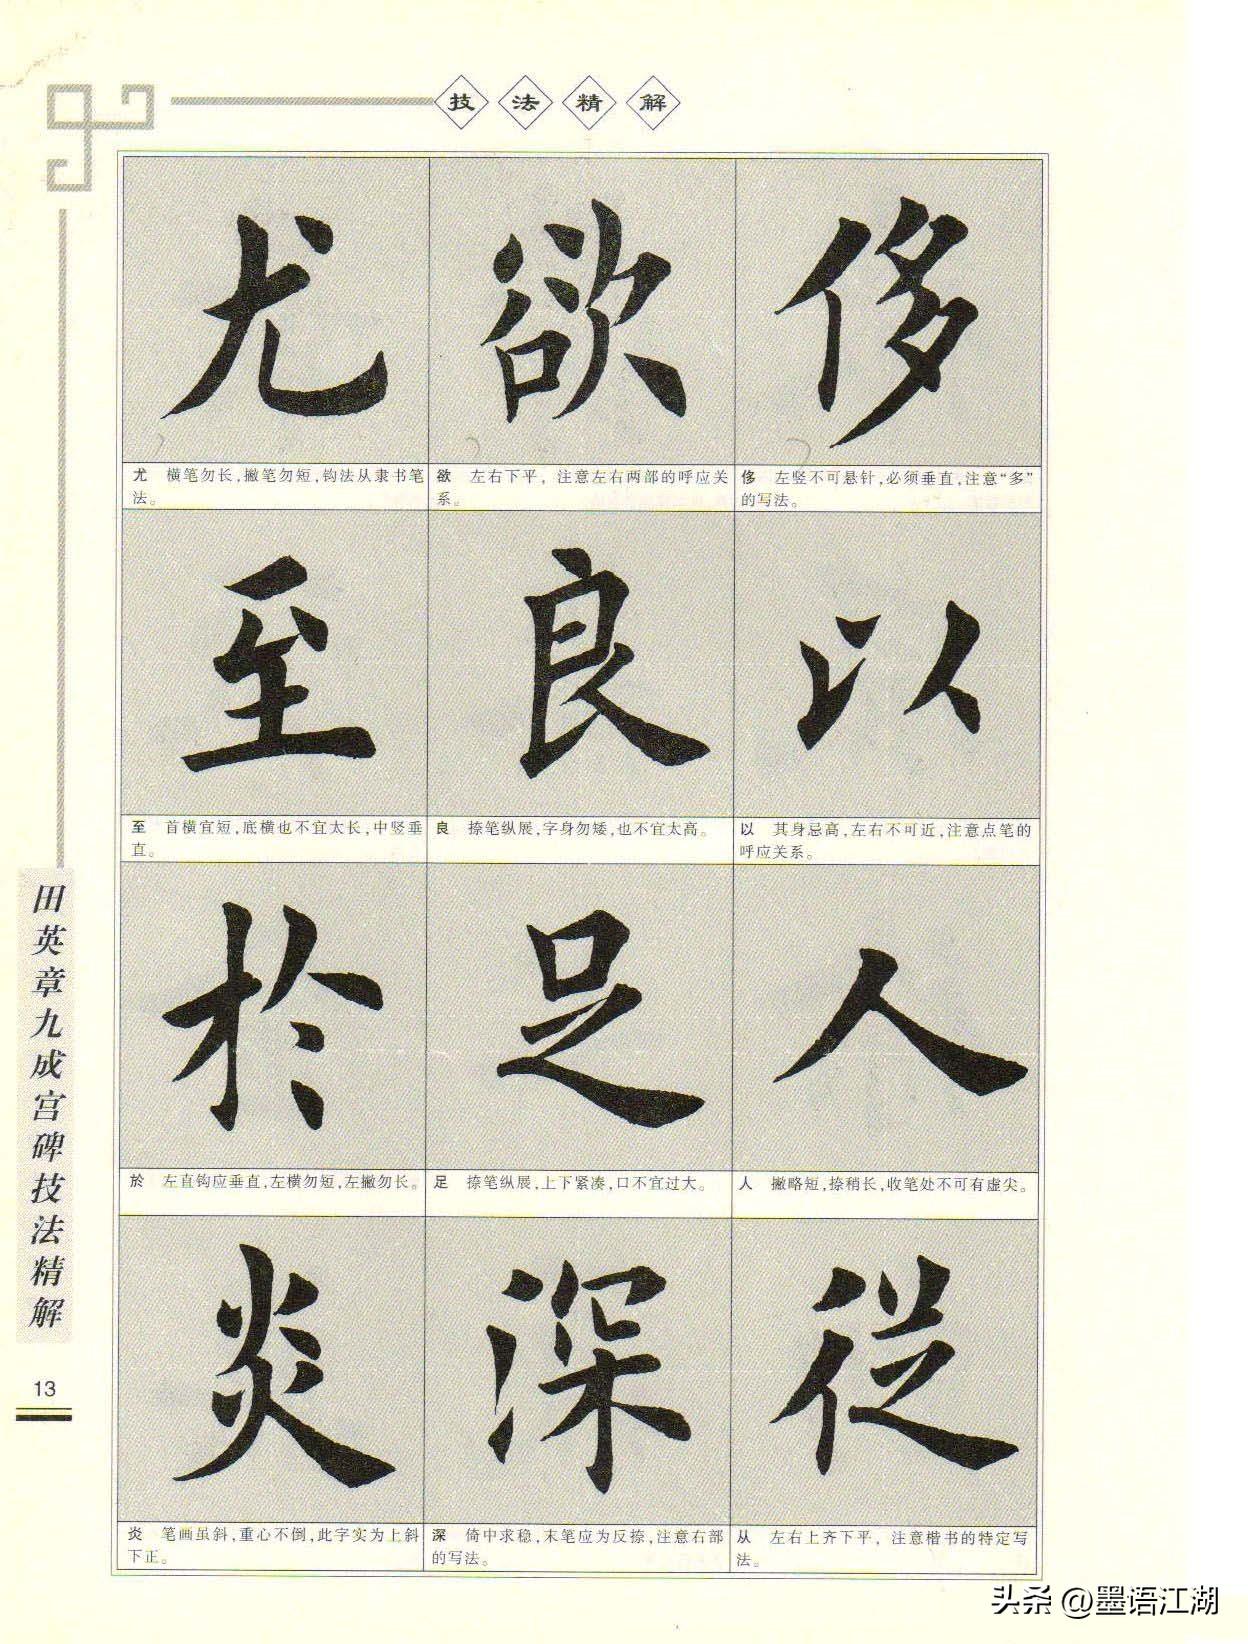 技法精解
尤 欲 侈
尤 横笔勿长,撇笔勿短,钩法从隶书笔
法。
欲 左右下平,注意左右两部的呼应关
系。
侈 左竖不可悬针,必须垂直,注意“多”
的写法。
至 良 以
至 首横宜短,底横也不宜太长,中竖垂
直。
良 捺笔纵展,字身勿矮,也不宜太高。
以 其身忌高,左右不可近,注意点笔的
呼应关系。
於 足 人
於 左直钩应垂直,左横勿短,左撇勿长。
足 捺笔纵展,上下紧凑,口不宜过大。
人 撇略短,捺稍长,收笔处不可有虚尖。
炎 深 從
炎 笔画虽斜,重心不倒,此字实为上斜
下正。
深 倚中求稳,末笔应为反捺,注意右部
的写法。
从 左右上齐下平,注意楷书的特定写
法。
田英章九成宫碑技法精解
13
头条 @墨语江湖